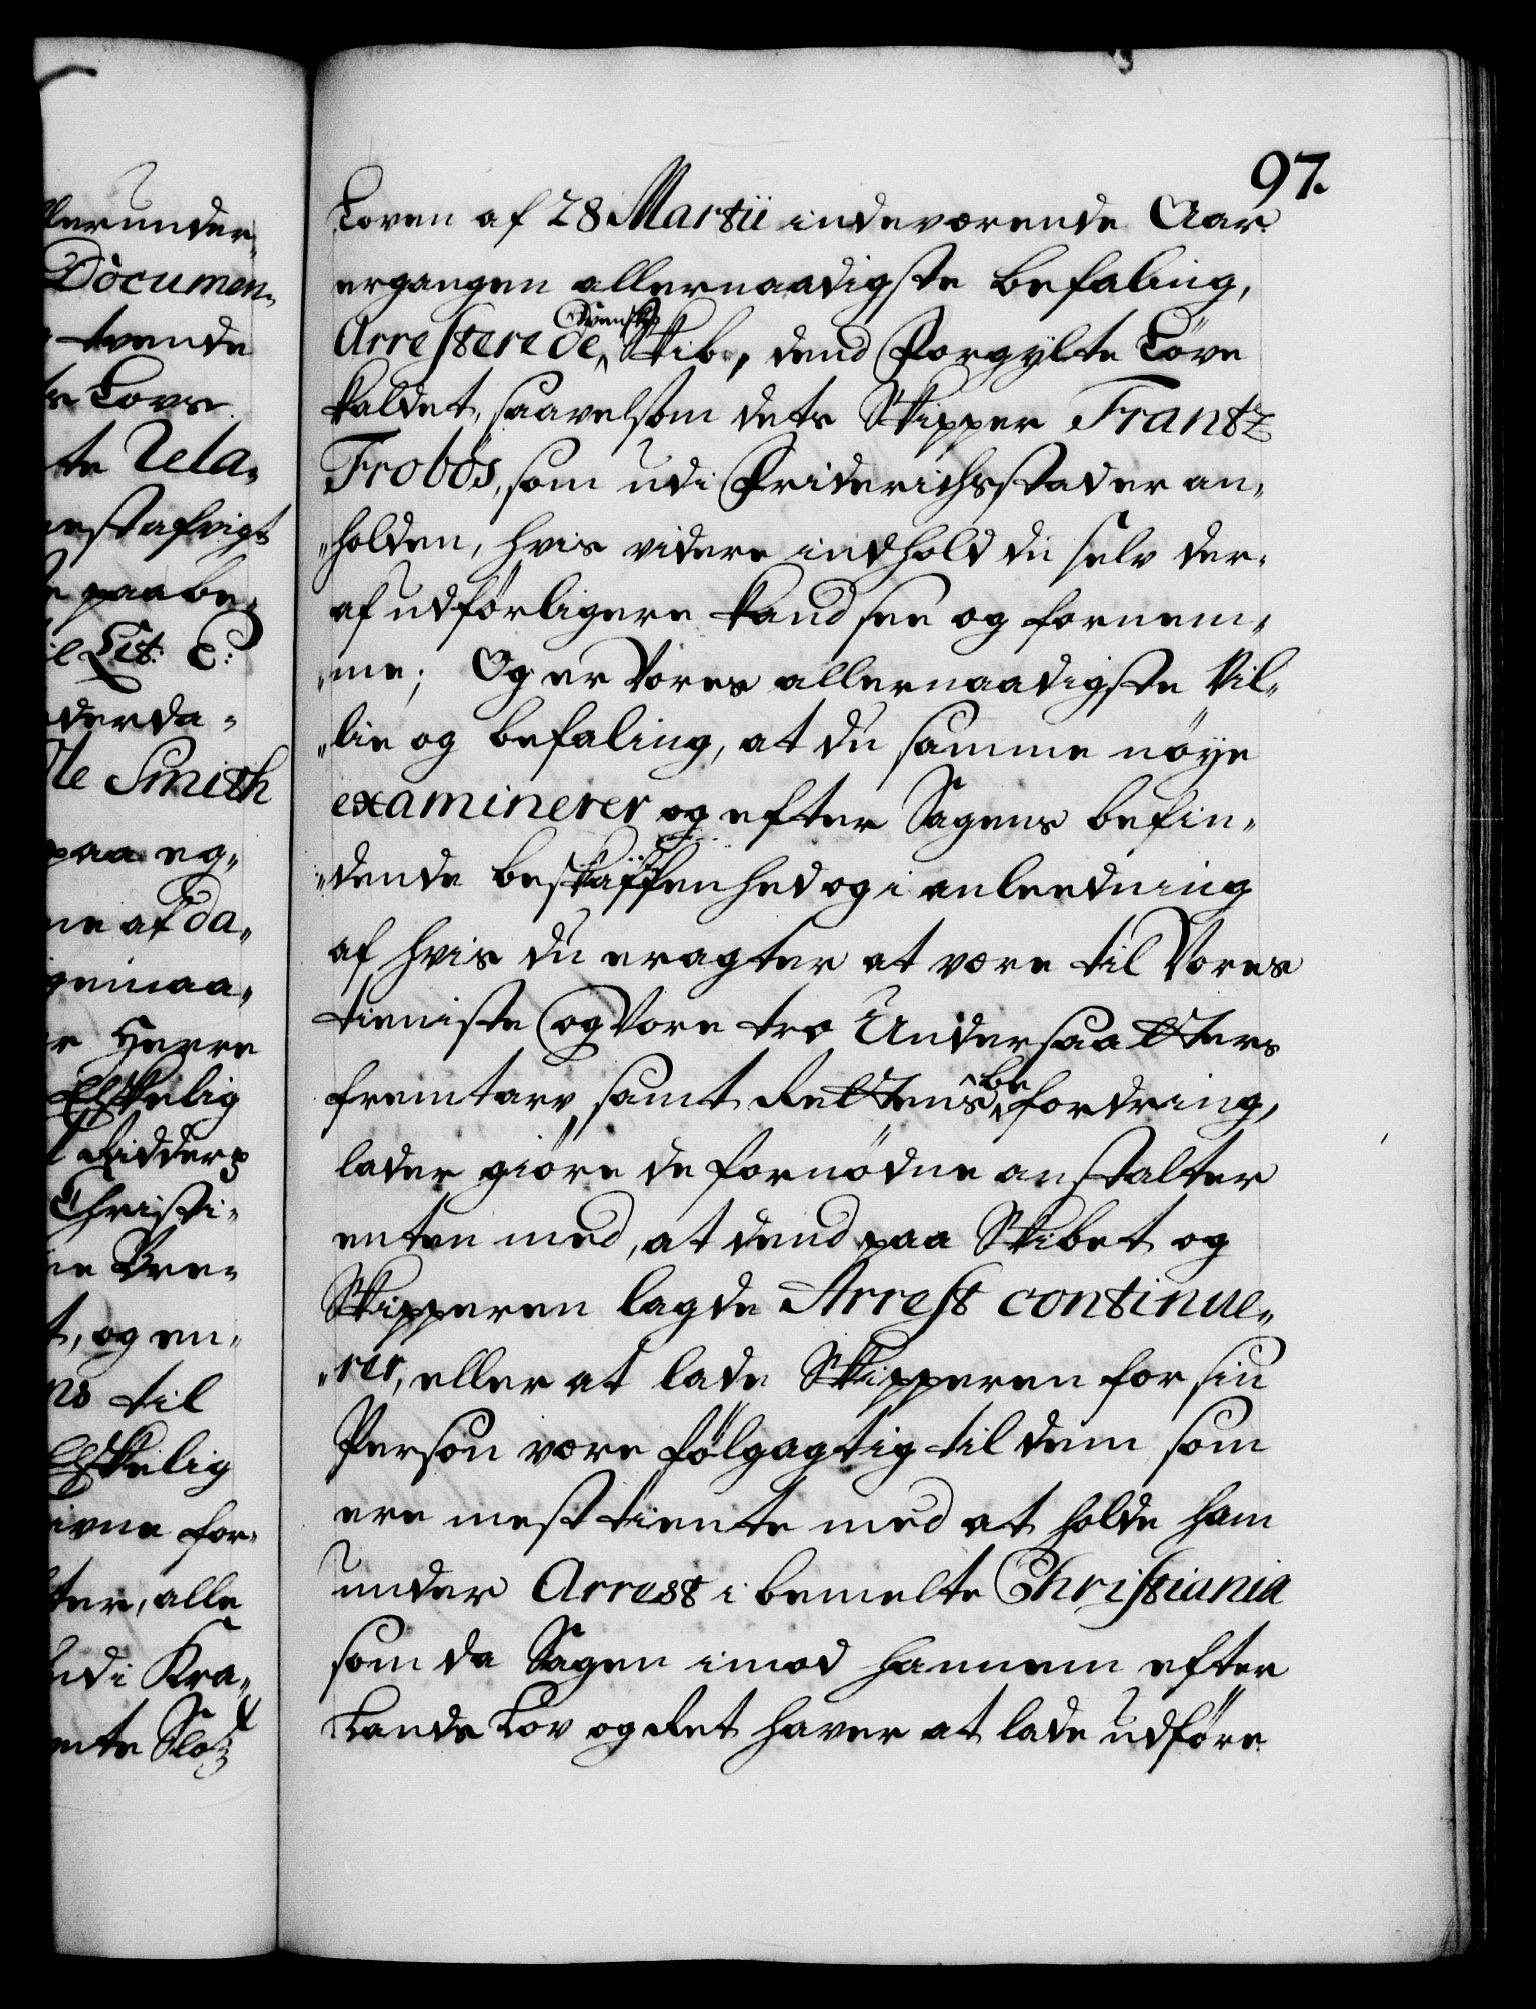 97.
Loven af 28 Martii indeværende Aar
ergangen allernaadigste befaling,
Arresterede Svenske Skib, dend Forgylte Löve
kaldet, saavelsom dets Skipper Frantz
Frobös, som udi Friderichsstad er an„
„holden, hvis videre indhold du selv der„
af udförligere kand see og fornem„
„me; Og er Vores allernaadigste Vil„
„lie og befaling, at du samme nöye
examinerer og efter Sagens befin„
„dende beskaffenhed og i anleedning
af hvis du eragter at være til Vores
tieniste og Vore tro Undersaatters
fremtarv, samt Rettens befordring,
lader giöre de fornödne anstalter
enten med, at dend paa Skibet og
Skipperen lagde Arrest continue„
„rer, eller at lade Skipperen for sin
Person være fölgagtig til dem som
ere mest tiente med at holde ham
under Arrest i bemelte Christiania
som da Sagen imod hannem efter
Lands Lov og Ret haver at lade udföre
llerunder„
Documen„
tvende
s Lovs
te Rela„
est afvigt
paabe„
il Lit. C:
derda„
lle Smith
paa eg„
ne af da„
gemaa„
r Herre
Elskelig
Ridder
Christi„
ne Bre„
t, og en„
ns til
Elskelig
ivne for„
ter, alle
udi Kra„
mte Slot